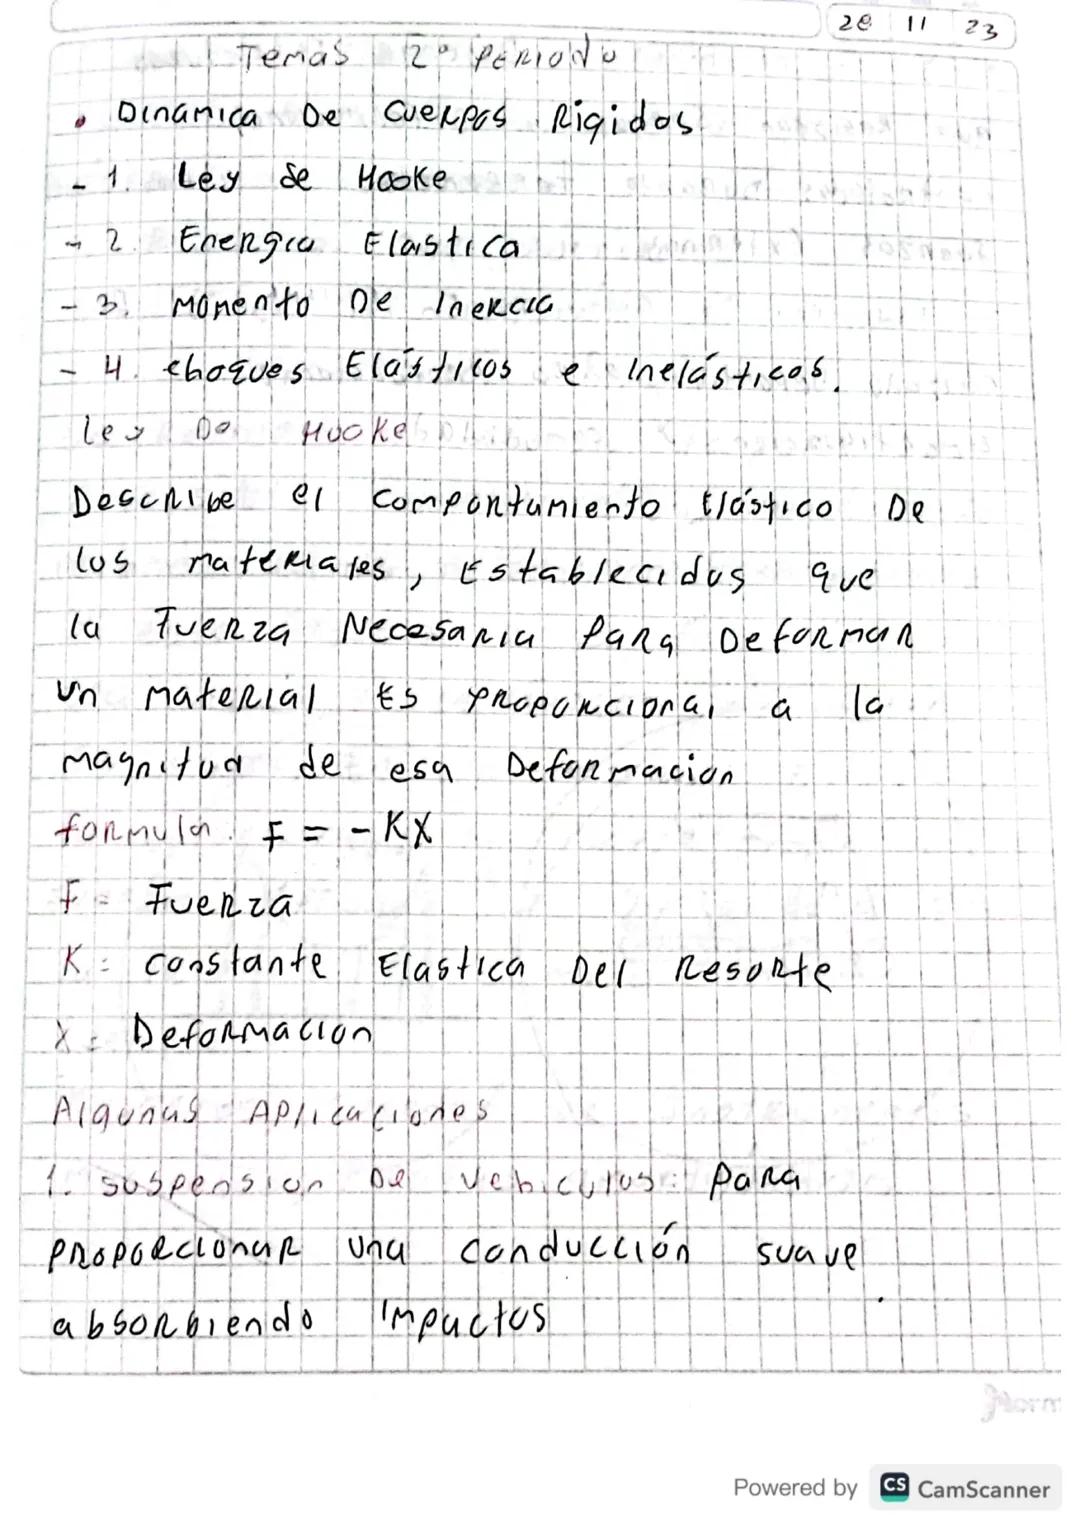 28 11 23
Temas 2° Periodo
• Dinamica De Cuerpos Rigidos
- 1. Ley de Hooke
- 2. Energia Elastica
- 3. Momento De Inercia
- 4. choques Elásticos e Inelásticos.
Ley De Hooke
Describe el comportamiento Elástico De
los materiales, Establecidos que
la Fuerza Necesaria Para Deformar
un material Es proporcional a la
magnitud de esa Deformacion
formula. F = - KX
F = Fuerza
K = constante Elastica Del Resorte
X = Deformacion
Algunas Aplicaciones
1. suspension De vehiculos: para
proporcionar una conducción suave
absorbiendo impactos
Norm
Powered by CS CamScanner